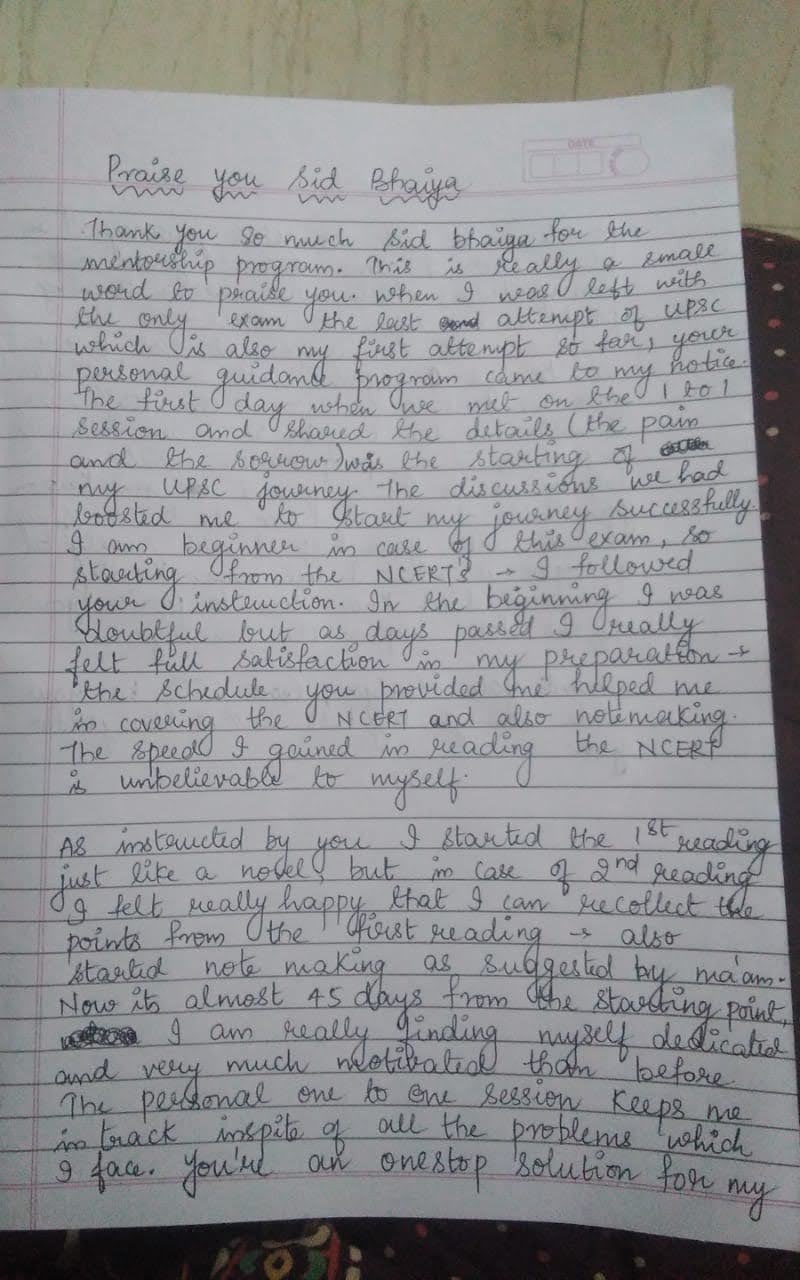 DATE
Praise you Sid Bhaiya
Thank you so much Sid bhaiya for the
mentorship program. This is really a small
word to praise you. when I was left with
the only exam the last attempt of UPSC
which is also my first attempt so far, your
personal guidance program came to my notice.
The first day when we met on the 1 to 1
session and shared the details (the pain
and the sorrow) was the starting of
my UPSC journey. The discussions we had
boosted me to start my journey successfully.
I am beginner in case of this exam, so
starting from the NCERT's → I followed
your instruction. In the beginning I was
doubtful but as days passed I really
felt full satisfaction in my preparation →
the schedule you provided me helped me
in covering the NCERT and also notemaking.
The speed I gained in reading the NCERT
is unbelievable to myself.
As instructed by you I started the 1st reading
just like a novel, but in case of 2nd reading
I felt really happy that I can recollect the
points from the first reading → also
started note making as suggested by ma'am.
Now its almost 45 days from the starting point,
I am really finding myself dedicated
and very much motivated than before.
The personal one to one session keeps me
in track inspite of all the problems which
I face. You're an onestop solution for my